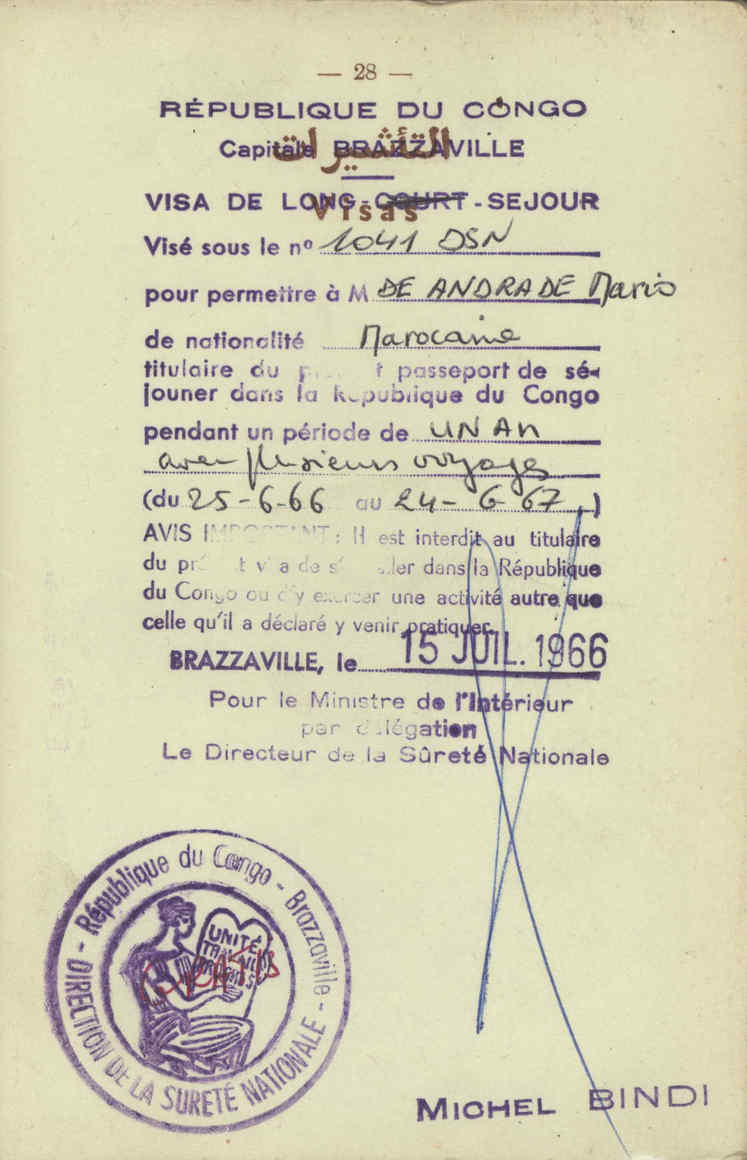 — 28 —
RÉPUBLIQUE DU CONGO
Capitale BRAZZAVILLE
التأشيرات
VISA DE LONG-COURT-SEJOUR
Visas
Visé sous le nº 1041 DSN
pour permettre à M DE ANDRADE Mario
de nationalité Marocaine
titulaire du passeport de sé-
jouner dans la République du Congo
pendant un période de UN AN
avec plusieurs voyages
(du 25-6-66 au 24-6-67)
AVIS IMPORTANT: Il est interdit au titulaire
du dans la République
du Congo ou d'y exercer une activité autre que
celle qu'il a déclaré y venir pratiquer.
BRAZZAVILLE, le 15 JUIL. 1966
Pour le Ministre de l'Intérieur
par délégation
Le Directeur de la Sûreté Nationale
- République du Congo - Brazzaville -
DIRECTION DE LA SURETÉ NATIONALE
UNITÉ
TRAVAIL
PROGRÈS
GRATIS
MICHEL BINDI